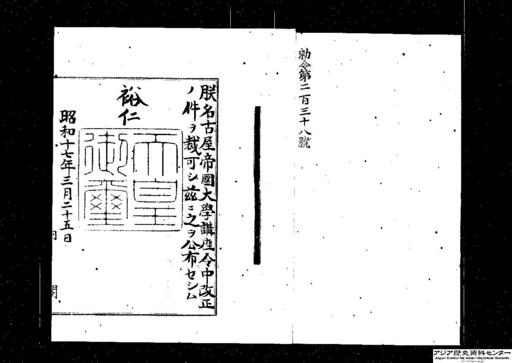 勅令第二百三十八號
朕名古屋帝國大學講座令中改正
ノ件ヲ裁可シ茲ニ之ヲ公布セシム
裕仁
天皇
御璽
昭和十七年三月二十五日
内閣
アジア歴史資料センター
Japan Center for Asian Historical Records